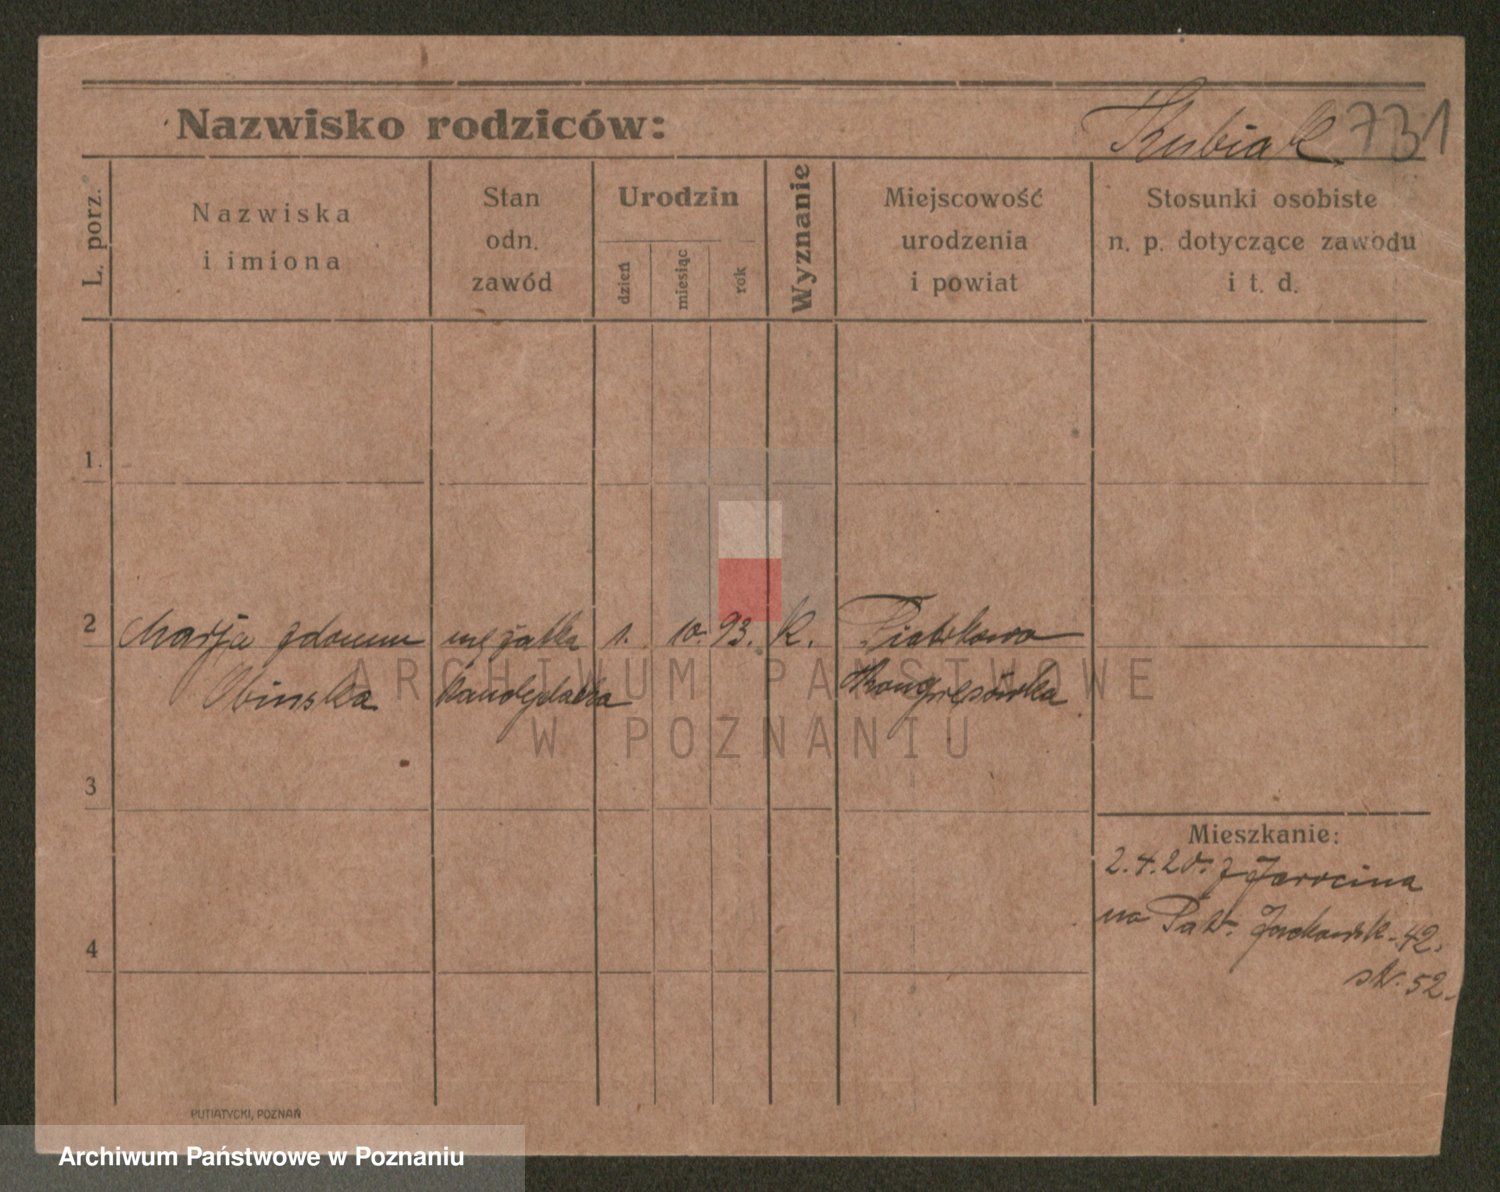 Nazwisko rodziców:
Kubiak 731
L. porz.
Nazwiska
i imiona
Stan
odn.
zawód
Urodzin
dzień
miesiąc
rok
Wyznanie
Miejscowość
urodzenia
i powiat
Stosunki osobiste
n. p. dotyczące zawodu
i t. d.
1.
2 Marja zdomu mężatka 1. 10. 93. k. Piotrkowo
Kongresówka
3
Mieszkanie:
2.4.20. z Jarocina
na Patr. Jackowsk. 42.
str. 52.
4
ARCHIWUM PAŃSTWOWE
W POZNANIU
PUTIATYCKI, POZNAŃ
Archiwum Państwowe w Poznaniu